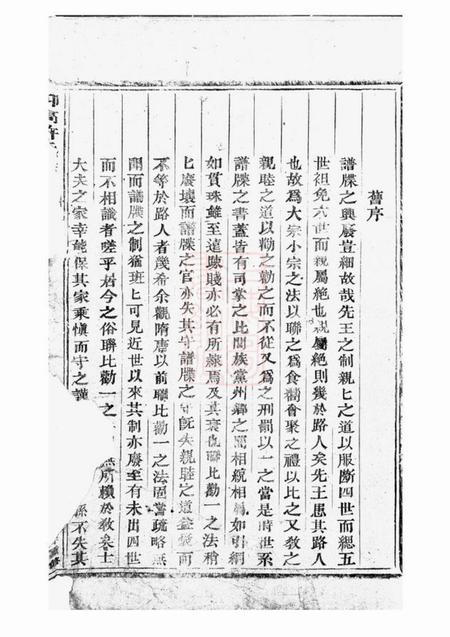 舊序
譜牒之興廢豈細故哉先王之制親匕之道以服斷四世而緦五
世祖免六世而親屬絶也親屬絶則幾於路人矣先王愚其路人
也故爲大宗小宗之法以聯之爲食 會聚之禮以比之又敎之
親睦之道以勸之勸之而不從又爲之刑罰以一之當是時世系
譜牒之書蓋皆有司掌之比閭族黨州鄉之間相統相 如引綱
如貫珠雖至遠 賤亦必有所 焉及其衰也聯比勸一之法稍
匕廢壞而譜牒之官亦失其守譜牒之守旣失親睦之道益 而
不等於路人者幾希余觀隋唐以前聯比勸一之法固嘗疏略無
聞而譜牒之制猶班匕可見近世以來其制亦廢至有未出四世
而不相識者嗟乎君今之俗聯比勸一之 無所賴於敎矣士
大夫之家幸能保其家乘愼而守之 係不失其